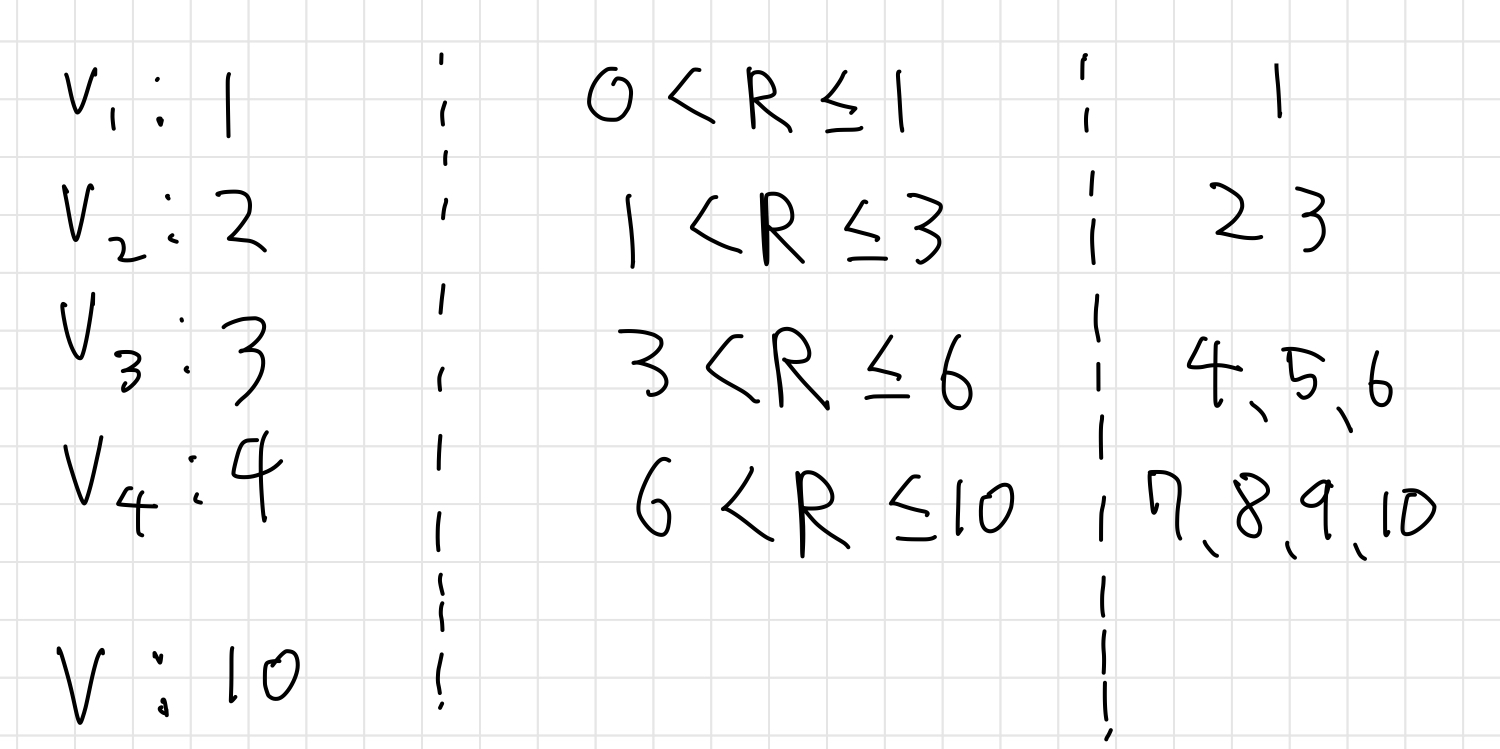 V₁: 1 0 < R ≤ 1 1
V₂: 2 1 < R ≤ 3 2 3
V₃: 3 3 < R ≤ 6 4、5、6
V₄: 4 6 < R ≤ 10 7、8、9、10
V: 10